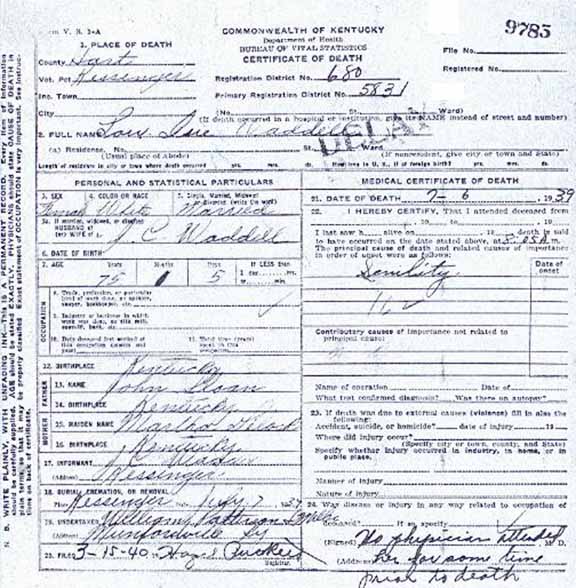 V. S. 1-A
COMMONWEALTH OF KENTUCKY
Department of Health
BUREAU OF VITAL STATISTICS
CERTIFICATE OF DEATH
9785
File No.
Registered No.
1. PLACE OF DEATH
County Hart
Vot. Pct Kessinger
Inc. Town
City
Registration District No. 680
Primary Registration District No. 5831
(No. St. Ward)
(If death occurred in a hospital or institution, give its NAME instead of street and number)
DELAY
2. FULL NAME Waddell
(a) Residence. No. St. Ward
(Usual place of Abode) (If nonresident, give city or town and State)
Length of residence in city or town where death occurred yrs. mos. ds. How long in U. S., if of foreign birth? yrs. mos. ds.
PERSONAL AND STATISTICAL PARTICULARS
3. SEX 4. COLOR OR RACE 5. Single, Married, Widowed
or divorced (write the word)
Female White Married
5a. If married, widowed, or divorced
HUSBAND of
(or) WIFE of J. C. Waddell
6. DATE OF BIRTH
7. AGE Months Days If LESS than
75 5 1 day hrs.
min.
OCCUPATION
8. Trade, profession, or particular
kind of work done, as spinner,
sawyer, bookkeeper, etc.
9. Industry or business in which
work was done, as silk mill,
saw mill, bank, etc.
10. Date deceased last worked at
this occupation (month and
year)
11. Total time (years)
spent in this
occupation
12. BIRTHPLACE Kentucky
FATHER
13. NAME John Sloan
14. BIRTHPLACE Kentucky
MOTHER
15. MAIDEN NAME Martha
16. BIRTHPLACE Kentucky
17. INFORMANT
(Address) Kessinger
18. BURIAL, CREMATION, OR REMOVAL
Place Kessinger Date July 7 1939
19. UNDERTAKER
(Address) Munfordville Ky
20. FILED 3-15-40
MEDICAL CERTIFICATE OF DEATH
21. DATE OF DEATH 7-6 1939
22. I HEREBY CERTIFY, That I attended deceased from
19 to 19
I last saw h alive on 19 death is said
to have occurred on the date stated above, at 5:05A m.
The principal cause of death and related causes of importance
in order of onset were as follows:
Date of
onset
Senility
162
Contributory causes of importance not related to
principal cause:
Name of operation Date of
What test confirmed diagnosis? Was there an autopsy?
23. If death was due to external causes (violence) fill in also the
following:
Accident, suicide, or homicide? date of injury 19
Where did injury occur?
(Specify city or town, county, and State)
Specify whether injury occurred in industry, in home, or in
public place.
Manner of injury
Nature of injury
24. Was disease or injury in any way related to occupation of
deceased? If so specify
(Signed) No physician attended M. D.
(Address) her for some time
prior to death
N. B. WRITE PLAINLY, WITH UNFADING INK—THIS IS A PERMANENT RECORD. Every item of information
should be carefully supplied. AGE should be stated EXACTLY. PHYSICIANS should state CAUSE OF DEATH in
plain terms, so that it may be properly classified. Exact statement of OCCUPATION is very important. See instructions
on back of certificate.